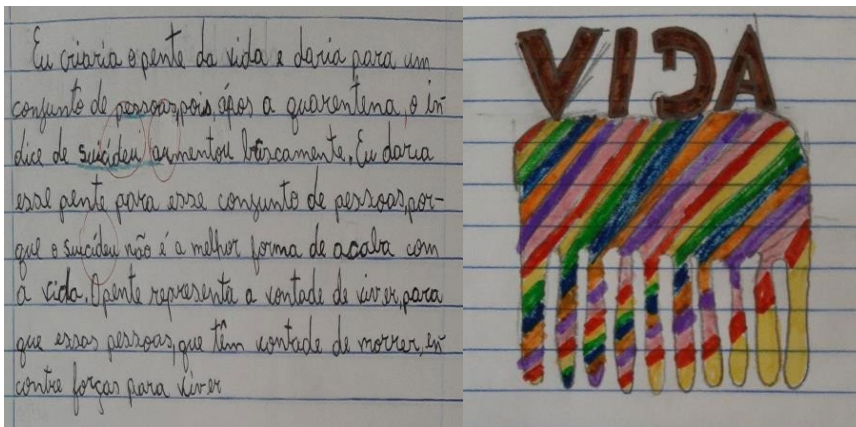 Eu criaria o pente da vida e daria para um
conjunto de pessoas, pois, após a quarentena, o ín-
dice de suicídeu aumentou bruscamente. Eu daria
esse pente para esse conjunto de pessoas, por-
que o suicídeu não é a melhor forma de acaba com
a vida. O pente representa a vontade de viver, para
que essas pessoas, que têm vontade de morrer, en
contre forças para viver
VIDA